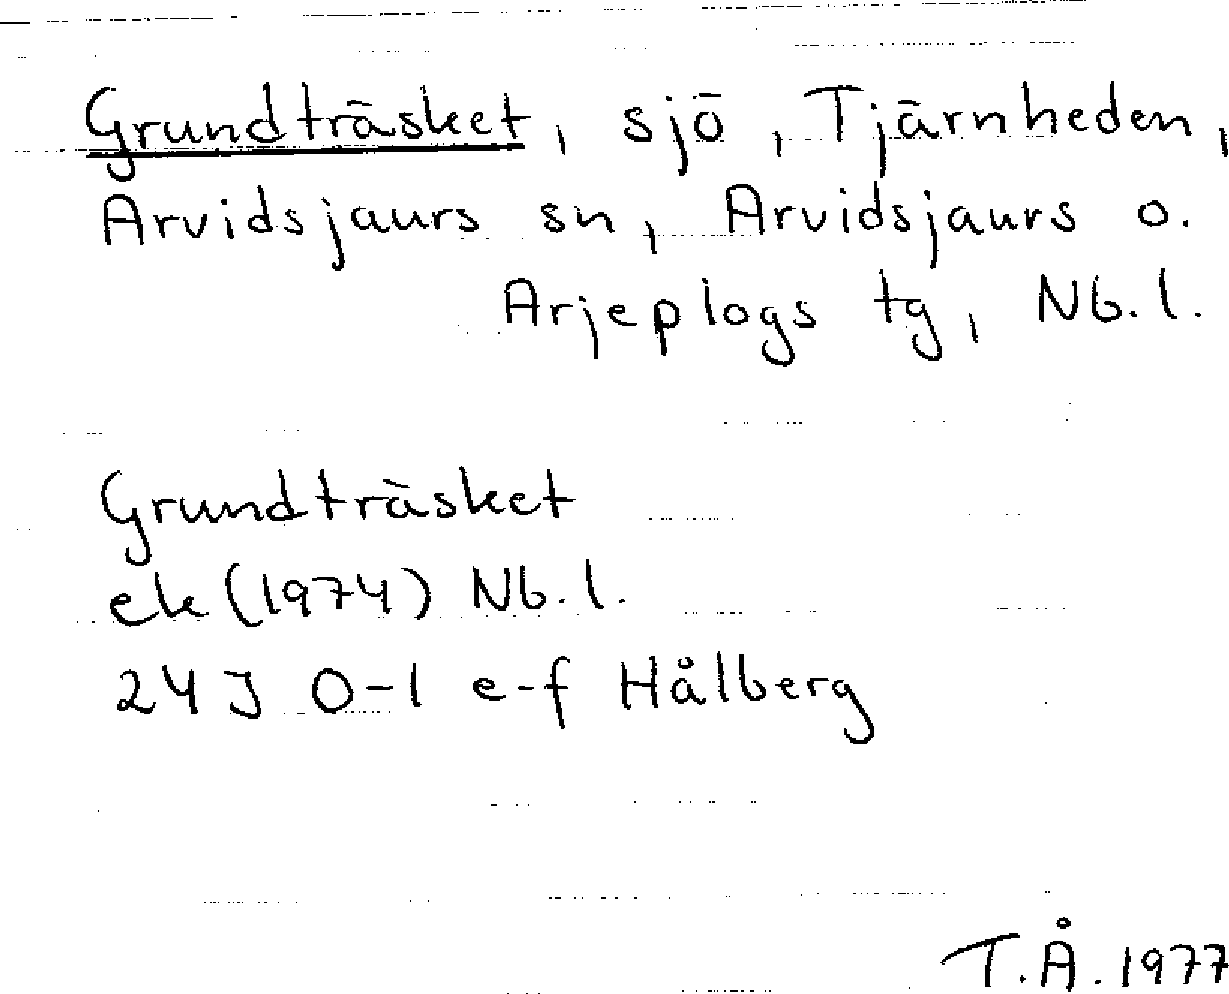 Grundträsket, sjö, Tjärnheden,
Arvidsjaurs sn, Arvidsjaurs o.
Arjeplogs tg, Nb.l.
Grundträsket
ek (1974) Nb.l.
24J 0-1 e-f Hålberg
T.Å. 1977